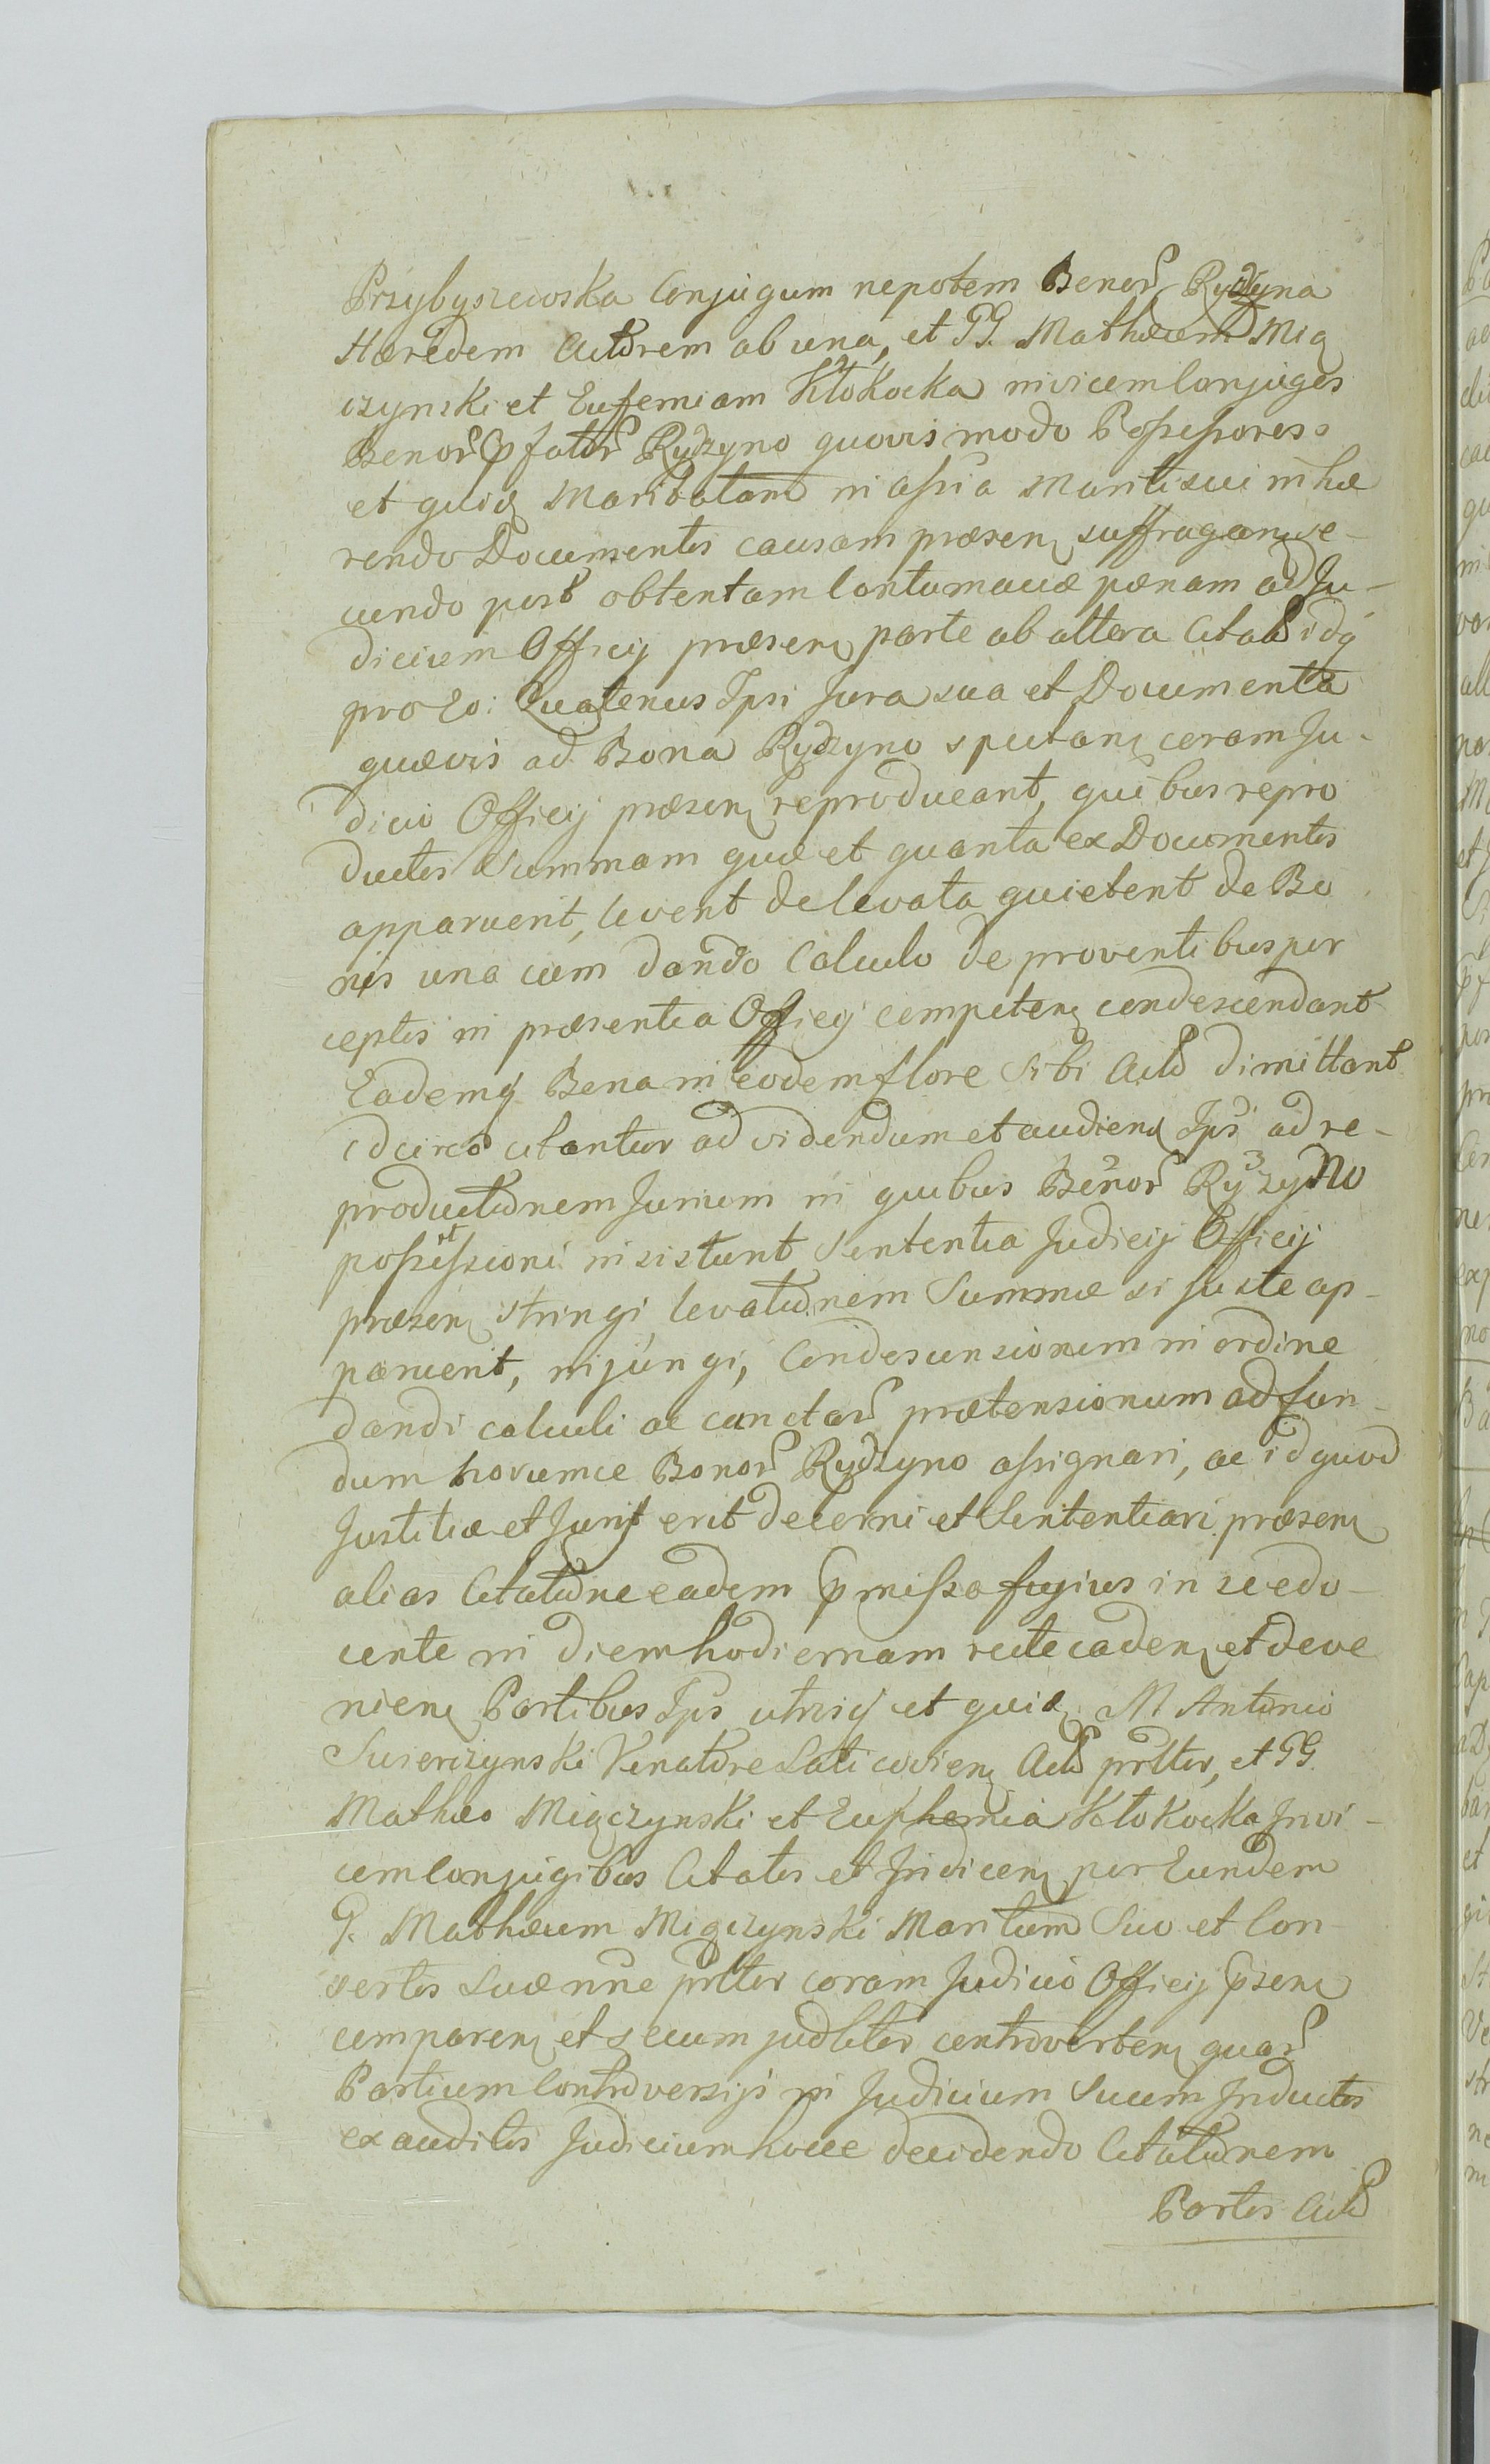 Przybyszewska Conjugum nepotem Bonor Rydzyna
Hæredem Actorem ab una, et GG. Mathæum Mią
czynski et Eufemiam Kłokocka invicem Conjuges
Bonor pfator Rydzyno quovis modo Possessores
et quidq Maritatam in assia Mariti sui inhæ
rendo Documentis causam præsenq suffraganq se-
cundo post obtentam Contumaciæ pænam ad Ju-
dicium Officij præsenq parte ab altera Citatos idq
pro Eo: Quatenus Ipsi Jura sua et Documenta
quævis ad Bona Rydzyno spectanq coram Ju-
dicio Officij præsenq reproducant, quibus repro
ductis Summam quæ et quanta ex Documentis
apparuerit, levent de levata quietent de Bo
nis una cum dando Calculo de proventibus per
ceptis in præsentia Officij competenq condescendant
Eademq Bona in eodem flore Sibi Actor dimittant
idcirco citantur ad videndum et audienq Ips ad re-
productionem Jurium in quibus Bonor Ryzyno
possessioni insistunt Sententia Judicij Officij
præsenq stringi, levationem Summæ si juste ap-
paruerit, injungi, Condescensionem in ordine
dandi calculi ac cunctar prætensionum ad fun-
dum horumce Bonor Rydzyno assignari, ac id quod
Justitiæ et Juris erit decerni et Sententiari præsenq
alias Citatione eadem pmissa fusius in se edo-
cente in diem hodiernam recte cadenq et deve
nienq Partibus Ips utrisq et quidq M Antonio
Swierczynski Venatore Laticovienq Acto prltter, et GG.
Mathæo Miączynski et Euphemia Kłokocka Invi-
cem Conjugibus Citatis et Invicenq per Eundem
G. Mathæum Miączynski Maritum Suo et Con-
sortis Suæ nne prltter coram Judicio Officij psenq
comparenq et secum judliter controvertenq quar
Partium Controversijs in Judicium Suum Inductis
ex auditis Judicium hocce decidendo Citationem
Partis Acto